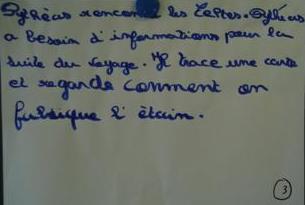 Pythéas rencontre les Celtes. Pythéas
a besoin d'informations pour la
suite du voyage. Il trace une carte
et regarde comment on
fabrique l'étain.
3